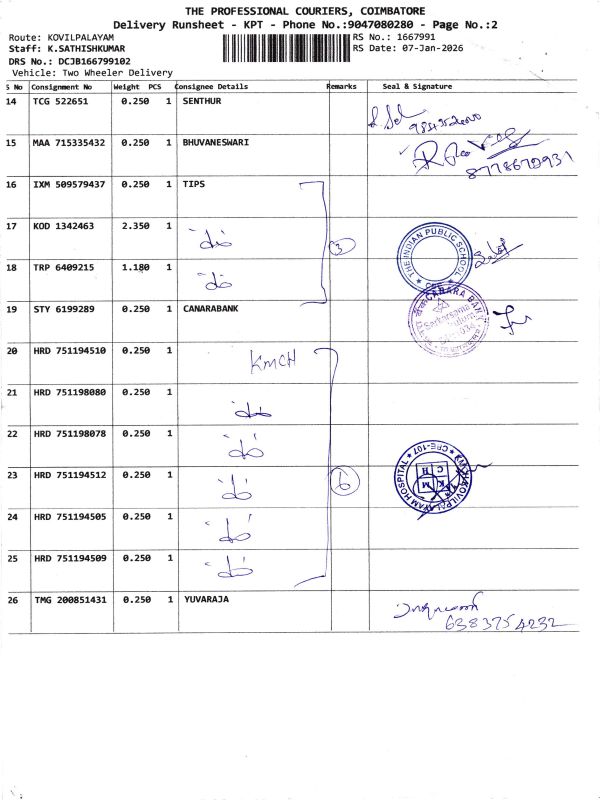 THE PROFESSIONAL COURIERS, COIMBATORE
Delivery Runsheet - KPT - Phone No.:9047080280 - Page No.:2
Route: KOVILPALAYAM
RS No.: 1667991
Staff: K.SATHISHKUMAR
RS Date: 07-Jan-2026
DRS No.: DCJB166799102
Vehicle: Two Wheeler Delivery
S No Consignment No Weight PCS Consignee Details Remarks Seal & Signature
14 TCG 522651 0.250 1 SENTHUR
15 MAA 715335432 0.250 1 BHUVANESWARI
8778672931
16 IXM 509579437 0.250 1 TIPS
17 KOD 1342463 2.350 1 3
THE INDIAN PUBLIC SCHOOL
18 TRP 6409215 1.180 1
19 STY 6199289 0.250 1 CANARABANK
CANARA BANK
20 HRD 751194510 0.250 1 KMCH
21 HRD 751198080 0.250 1
22 HRD 751198078 0.250 1
23 HRD 751194512 0.250 1 6
KOVILPALAYAM HOSPITAL CBE-107
K M C H
24 HRD 751194505 0.250 1
25 HRD 751194509 0.250 1
26 TMG 200851431 0.250 1 YUVARAJA
6383754232